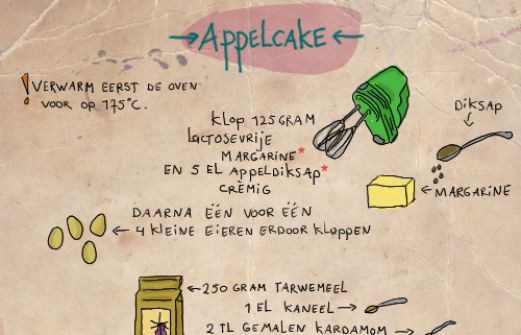 APPELCAKE
! VERWARM EERST DE OVEN
VOOR OP 175°C.
KLOP 125 GRAM
LACTOSEVRIJE
MARGARINE*
EN 5 EL APPELDIKSAP*
CRÈMIG
DIKSAP
MARGARINE
DAARNA ÉÉN VOOR ÉÉN
4 KLEINE EIEREN ERDOOR KLOPPEN
250 GRAM TARWEMEEL
1 EL KANEEL
2 TL GEMALEN KARDAMOM